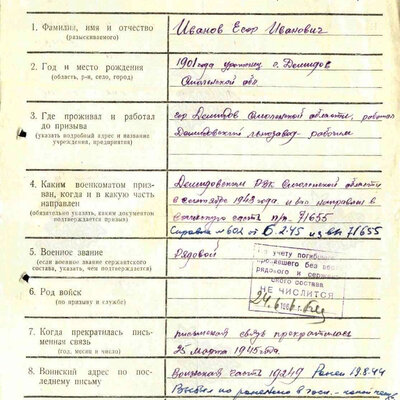 1. Фамилия, имя и отчество
(разыскиваемого)
Иванов Егор Иванович
2. Год и место рождения
(область, р-н, село, город)
1901 года уроженец г. Демидов
Смоленской обл.
3. Где проживал и работал
до призыва
(указать подробный адрес и название
учреждения, предприятия)
гор Демидов Смоленской области, работал
Демидовский льнозавод рабочим
4. Каким военкоматом приз-
ван, когда и в какую часть
направлен
(обязательно указать, каким документом
подтверждается призыв)
Демидовским РВК Смоленской области
в сентябре 1943 года и был направлен в
воинскую часть п/п. 71655
Справка № 602 от 5.2.45 из в/ч 71655
5. Военное звание
(если военное звание сержантского
состава, указать, чем подтверждается)
Рядовой
учету погибшего
пропавшего без вес
рядового и сержан
ского состава
НЕ ЧИСЛИТСЯ
24.6
6. Род войск
(по призыву и службе)
7. Когда прекратилась пись-
менная связь
(год, месяц и число)
письменная связь прекратилась
25 марта 1945 года.
8. Воинский адрес по по-
следнему письму
Воинская часть 19249 Ранен 19.8.44
Выбыл по ранению в госп.